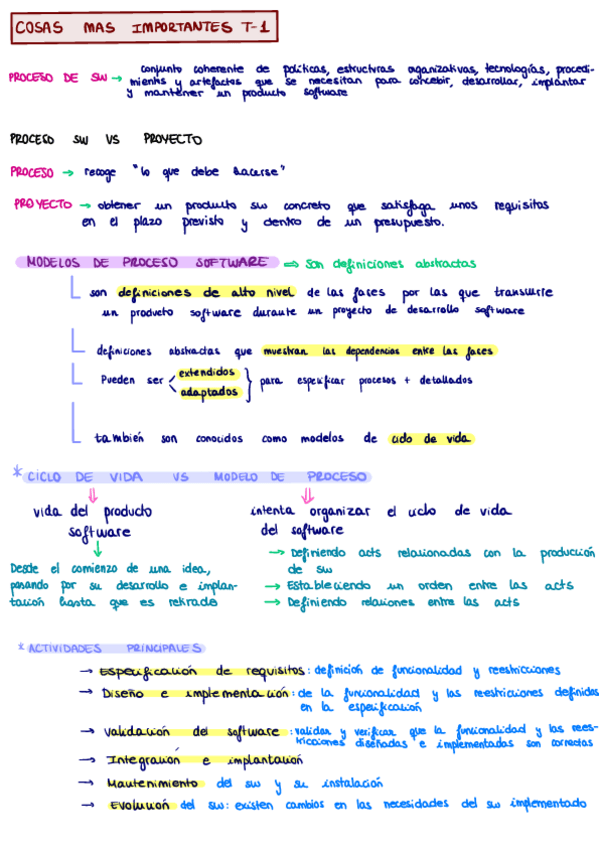 COSAS MAS IMPORTANTES T-1
PROCESO DE SW → conjunto coherente de políticas, estructuras organizativas, tecnologías, procedi-
mientos y artefactos que se necesitan para concebir, desarrollar, implantar
y mantener un producto software
PROCESO SW VS PROYECTO
PROCESO → recoge "lo que debe hacerse"
PROYECTO → obtener un producto sw concreto que satisfaga unos requisitos
en el plazo previsto y dentro de un presupuesto.
MODELOS DE PROCESO SOFTWARE ⇒ son definiciones abstractas
son definiciones de alto nivel de las fases por las que transcurre
un producto software durante un proyecto de desarrollo software
definiciones abstractas que muestran las dependencias entre las fases
Pueden ser extendidos
adaptados para especificar procesos + detallados
también son conocidos como modelos de ciclo de vida
* CICLO DE VIDA VS MODELO DE PROCESO
vida del producto
software
intenta organizar el ciclo de vida
del software
Desde el comienzo de una idea,
pasando por su desarrollo e implan-
tación hasta que es retirado
→ Definiendo acts relacionadas con la producción
de sw
→ Estableciendo un orden entre las acts
→ Definiendo relaciones entre las acts
* ACTIVIDADES PRINCIPALES
→ Especificación de requisitos: definición de funcionalidad y reestricciones
→ Diseño e implementación: de la funcionalidad y las reestricciones definidas
en la especificación
→ Validación del software: validar y verificar que la funcionalidad y las rees-
tricciones diseñadas e implementadas son correctas
→ Integración e implantación
→ Mantenimiento del sw y su instalación
→ Evolución del sw: existen cambios en las necesidades del sw implementado